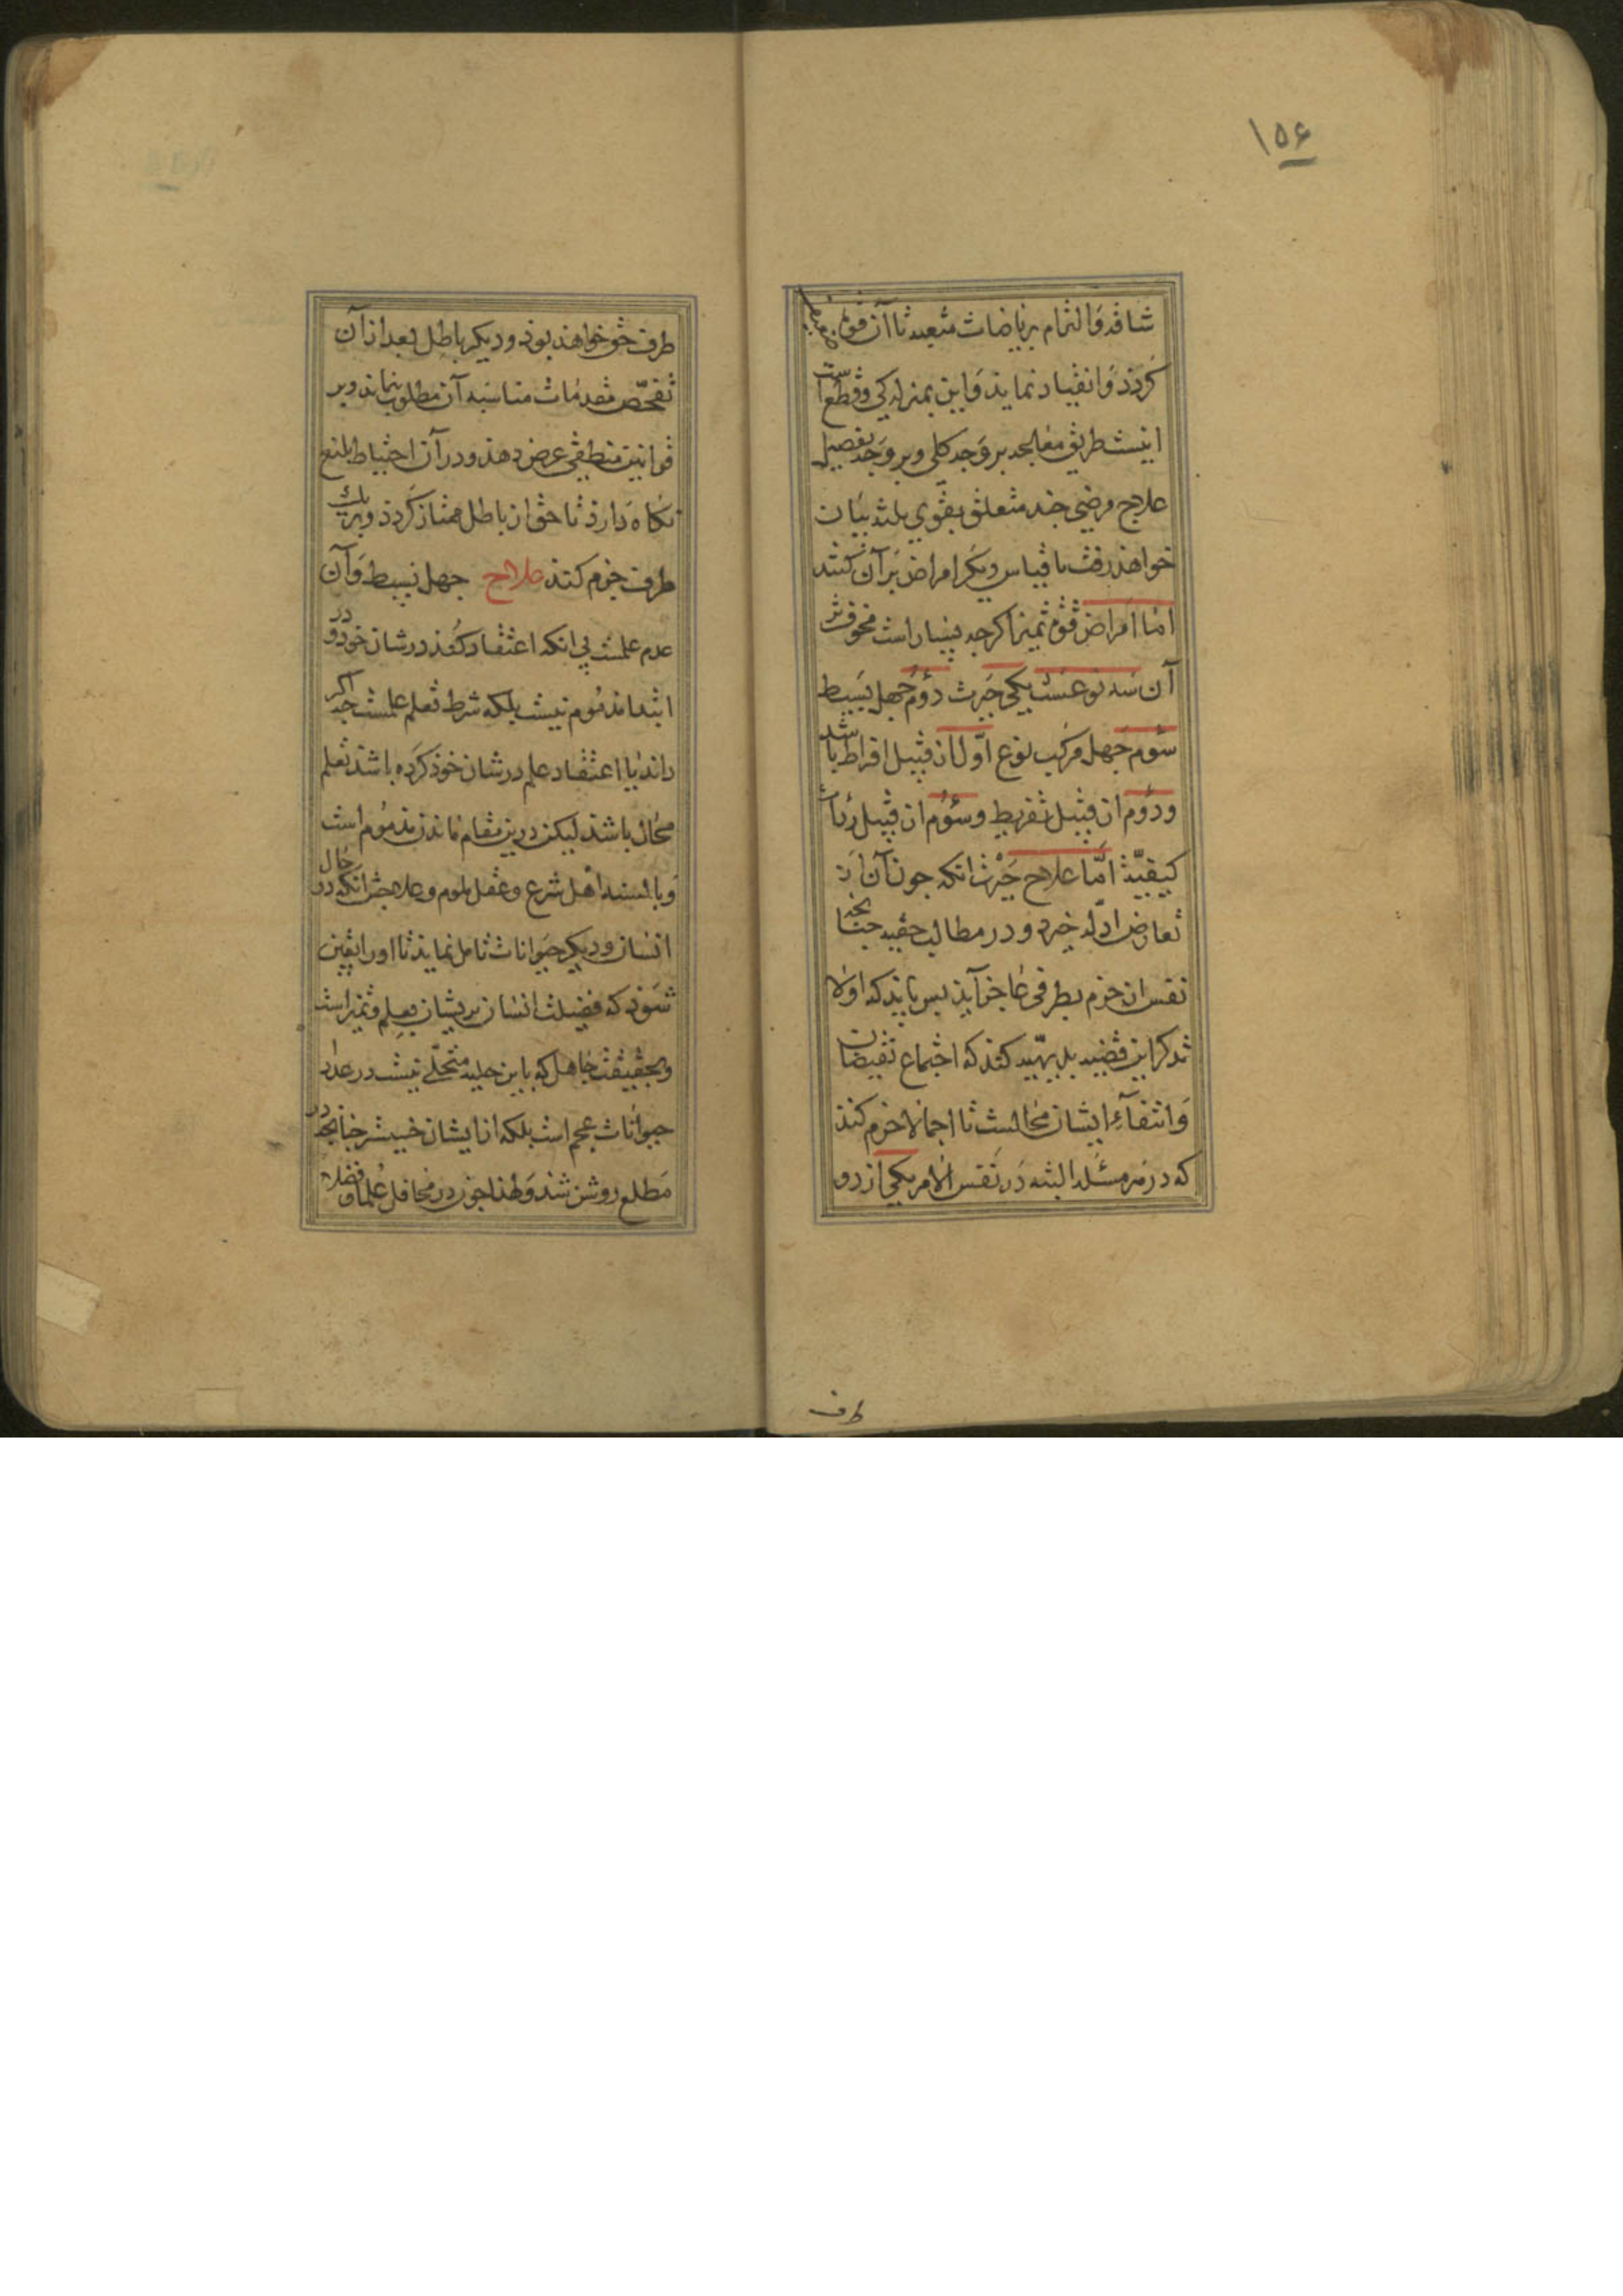 ۱۵۶
شاقه و التزام بریاضات متعبه تا آن قوت ضعیف
کردد و انقیاد نماید و این بمنزله کی و قطع است
اینست طریق معالجه بر وجه کلی و بر وجه تفصیل
علاج مرضی چند متعلق بقوی ثلثه بیان
خواهد رفت تا قیاس دیکر امراض بر آن کنند
اما امراض قوم تمیز اکرجه بسیار است مخوفترین
آن سه نوعست یکی حیرت دوم جهل بسیط
سوم جهل مرکب نوع اول از قبیل افراط باشد
و دوم از قبیل تفریط و سوم از قبیل رداءت
کیفیت اما علاج حیرت انکه جون آن از
تعارض ادله خیزد و در مطالب حقیه جنانجه
نفس از جزم بطرفی عاجز آید بس باید که اولا
تذکر این قضیه بدیهیه کند که اجتماع نقیضان
و انتفاء ایشان محالست تا اجمالا جزم کند
که در هر مسئله البته در نفس الامر یکی از دو
طرف
طرف حق خواهد بود و دیکر باطل بعد از آن
تفحص مقدمات مناسبه آن مطلوب نماید و بر
قوانین منطقی عرض دهد و در آن احتیاط بلیغ
نکاه دارد تا حق از باطل ممتاز کردد و بر یک
طرف جزم کند علاج جهل بسیط و آن
عدم علمست بی انکه اعتقاد کند در شان خود و در
ابتدا مذموم نیست بلکه شرط تعلم علمست جه اکر
داند یا اعتقاد علم در شان خود کرده باشد تعلم
محال باشد لیکن درین مقام ماندن مذموم است
و بالسنه اهل شرع و عقل ملوم و علاجش انکه در حال
انسان و دیکر حیوانات تامل نماید تا او را یقین
شود که فضیلت انسان بر ایشان بعلم و تمیز است
و بحقیقت جاهل که باین حلیه متحلی نیست در عداد
حیوانات عجم است بلکه از ایشان خسیستر جنانجه در
مطلع روشن شد و لهذا جون در محافل علما و فضلا